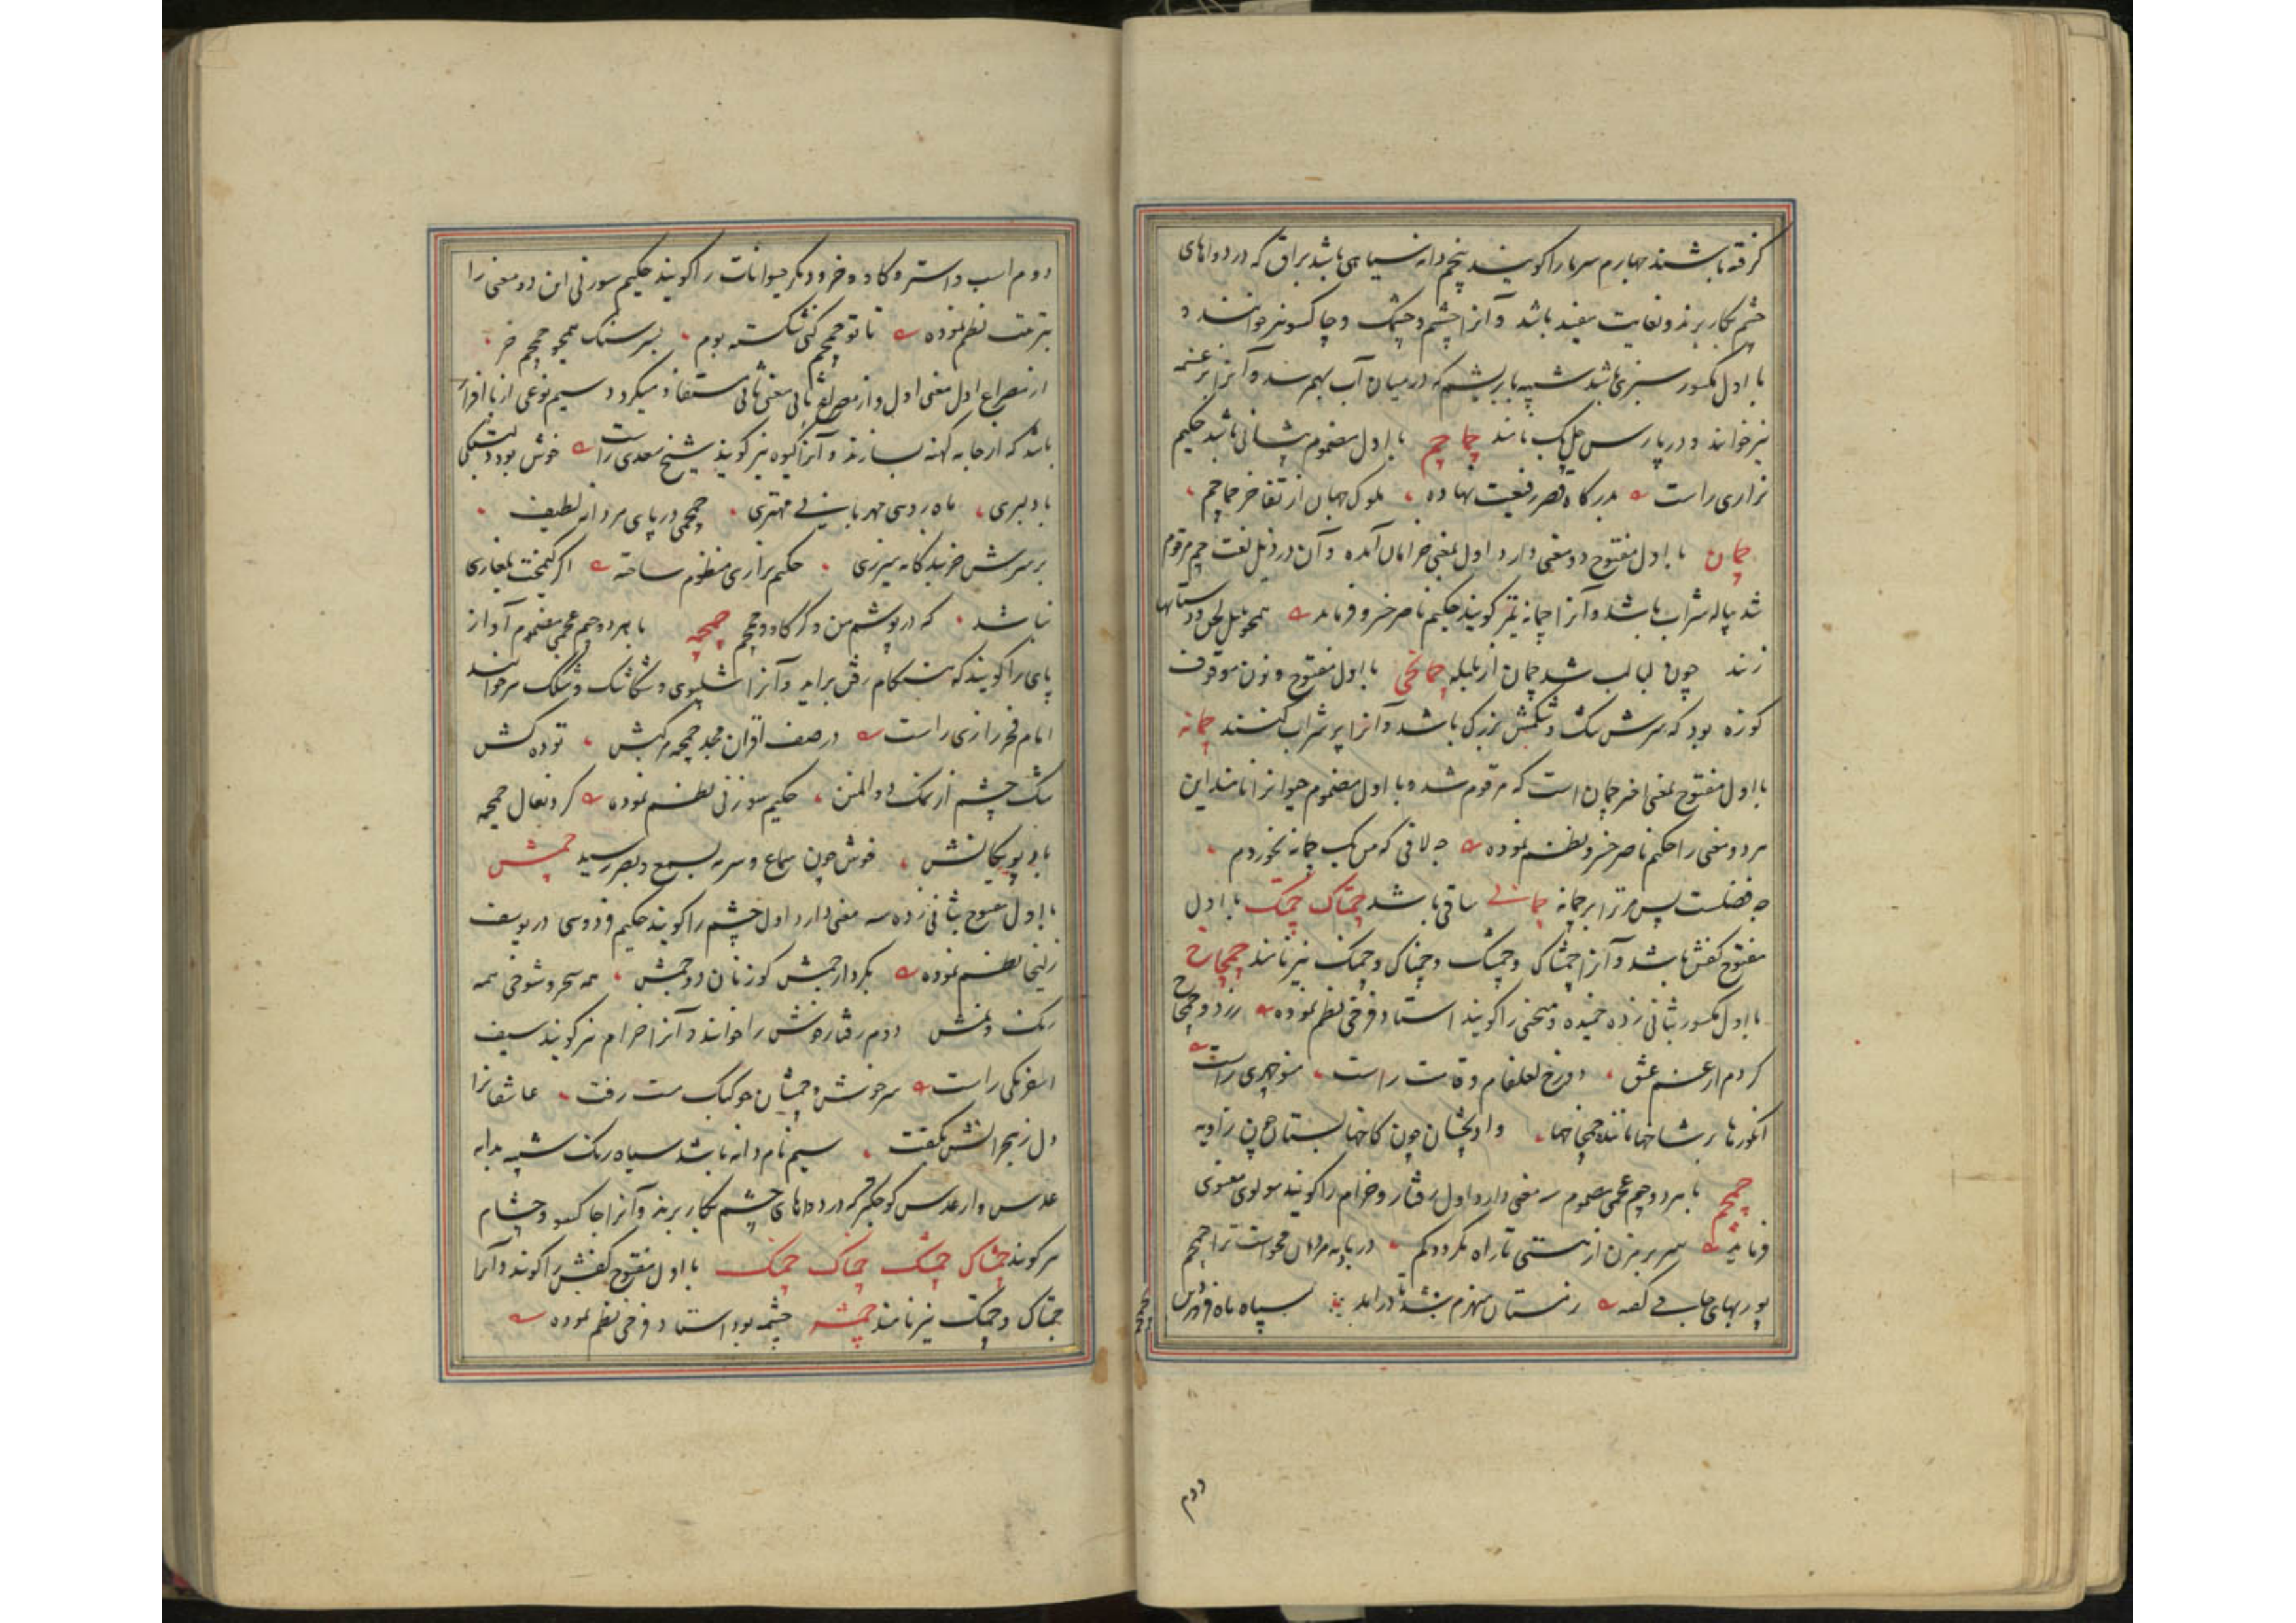 گرفته باشند چهارم سرما را گویند پنجم دانه سیاهی باشد براق که در دواهای
چشم بکار برند و بغایت مفید باشد و آنرا چشم و چشمک و چاکسو نیز خوانند و
با اول مکسور سبزی باشد شبیه بابریشم که در میان آب بهم رسد و آنرا بزغسمه
نیز خوانند و در پارس جل بک نامند چماچم با اول مضموم پیشانی باشد حکیم
نزاری راست بدرگاه قصر رفیعت نهاده ملوک جهان از تفاخر چماچم
چمان با اول مفتوح دو معنی دارد اول بمعنی خرامان آمده و آن در ذیل لغت چم مرقوم
شد پیاله شراب باشد و آنرا چمانه نیز گویند حکیم ناصر خسرو فرماید همچو بلبل لحن و دستانها
زنند چون لبالب شد چمان از بلبله چمانچی با اول مفتوح و نون موقوف
کوزه بود که سرش تنگ و شکمش بزرگ باشد و آنرا پر شراب کنند چمانه
با اول مفتوح بمعنی اخیر چمان است که مرقوم شد و با اول مضموم حیوانرا نامند این
هر دو معنی را حکیم ناصر خسرو نظم نموده چه لافی که من یک چمانه نخوردم
چه فضلست پس مر ترا بر چمانه چمانی ساقی باشد چمتاک چمتک با اول
مفتوح کفش باشد و آنرا چمشاک و چمشک و چمناک و چمنک نیز نامند چمچاخ
با اول مکسور بثانی زده خمیده و منحنی را گویند استاد فرخی نظم نموده زرد و چمچاخ
کردم از غم عشق دو رخ لعلفام و قامت راست منوچهری راست
انگورها بر شاخها ماننده چمچاخها واویجشان چون کاخها بستانش چون زاویه
چمچم با هر دو چیم عجمی مضموم سه معنی دارد اول رفتار و خرام را گویند مولوی معنوی
فرماید سر برمزن از هستی تا راه نگردد گم در بادیه مردان محواست ترا چمچم
پور بهای جامی گفته زمستان منهزم شد تا درآید سپاه ماه فروردین
دوم
دوم اسب و استر و گاو و خر و دیگر حیوانات را گویند حکیم سوزنی این دو معنی را
بترتیب نظم نموده تا تو چمچم کنی شکسته بوم بر سر سنگ همچو چمچم خر
از مصراع اول معنی اول و از مصراع ثانی معنی ثانی مستفاد میگردد سیم نوعی از پاافزار
باشد که از جامه کهنه سازند و آنرا گیوه نیز گویند شیخ سعدی راست خوش بود دلبستگی
با دلبری ماه روئی مهربانی مهتری چمچمی در پای مردانه لطیف
بر سرش خربندگانه میزری حکیم نزاری منظوم ساخته اگر کیمخت بلغاری
نباشد که در پوشم من و گرگاو و چمچم چمچمه با هر دو چیم عجمی مضموم آواز
پای را گویند که هنگام رفتن برآید و آنرا شلپوی و شکاشک و شلک نیز خوانند
امام فخر رازی راست در صف اقران مجد چمچمه برکش تو ده کش
تنگ چشم از نمک ذوالمنن حکیم سوزنی نظم نموده گرد نعال چمچمه
باد پویگانش خوش چون سماع و سرمه بسمع و بصر رسید چمش
با اول مفتوح بثانی زده سه معنی دارد اول چشم را گویند حکیم فردوسی در یوسف
زلیخا نظم نموده بکردار چمش گوزنان دو چمش همه سحر و شوخی همه
رنگ و غمش دوم رفتار خوش را خوانند و آنرا خرام نیز گویند سیف
اسفرنگی راست سرخوش و چمشان چو کبک مست رفت عاشقانرا
دل ز هجرانش بکفت سیم نام دانه باشد سیاه رنگ شبیه بدانه
عدس و از عدس کوچکتر که در دواهای چشم بکار برند و آنرا چاکسو و چشام
نیز گویند چمشاک چمشک چمناک چمنک با اول مفتوح کفش را گویند و آنرا
چمتاک و چمتک نیز نامند چمشه چشمه بود استاد فرخی نظم نموده